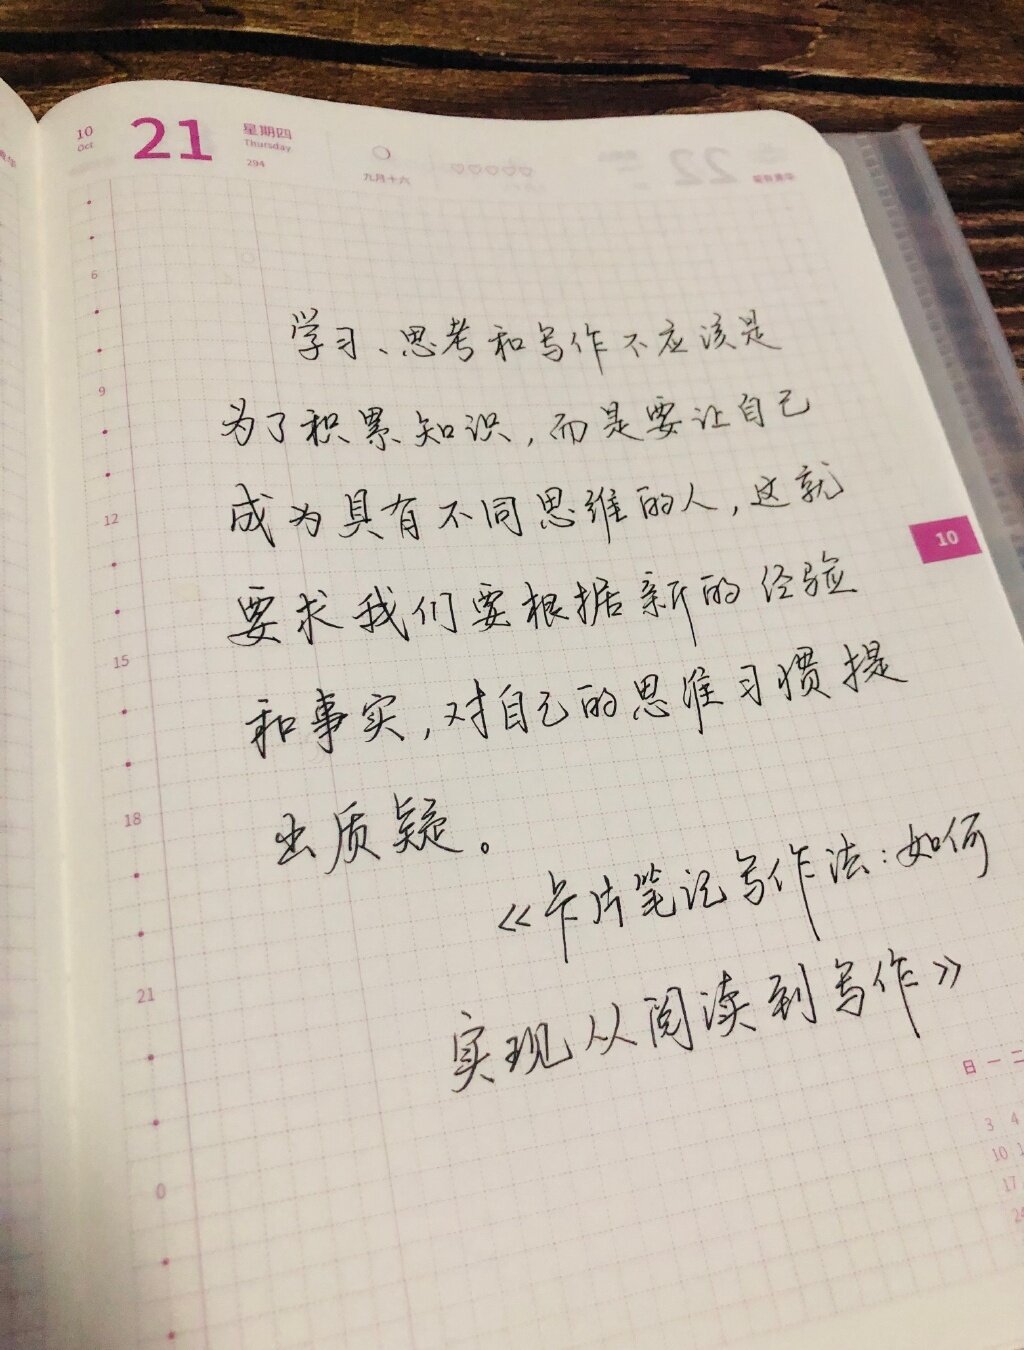 10
Oct
21
星期四
Thursday
294
九月十六
♡♡♡♡♡
22
6
9
12
15
18
21
0
学习、思考和写作不应该是
为了积累知识，而是要让自己
成为具有不同思维的人，这就
要求我们要根据新的经验
和事实，对自己的思维习惯提
出质疑。
《卡片笔记写作法：如何
实现从阅读到写作》
10
日 一 二
3 4
10 1
17
24